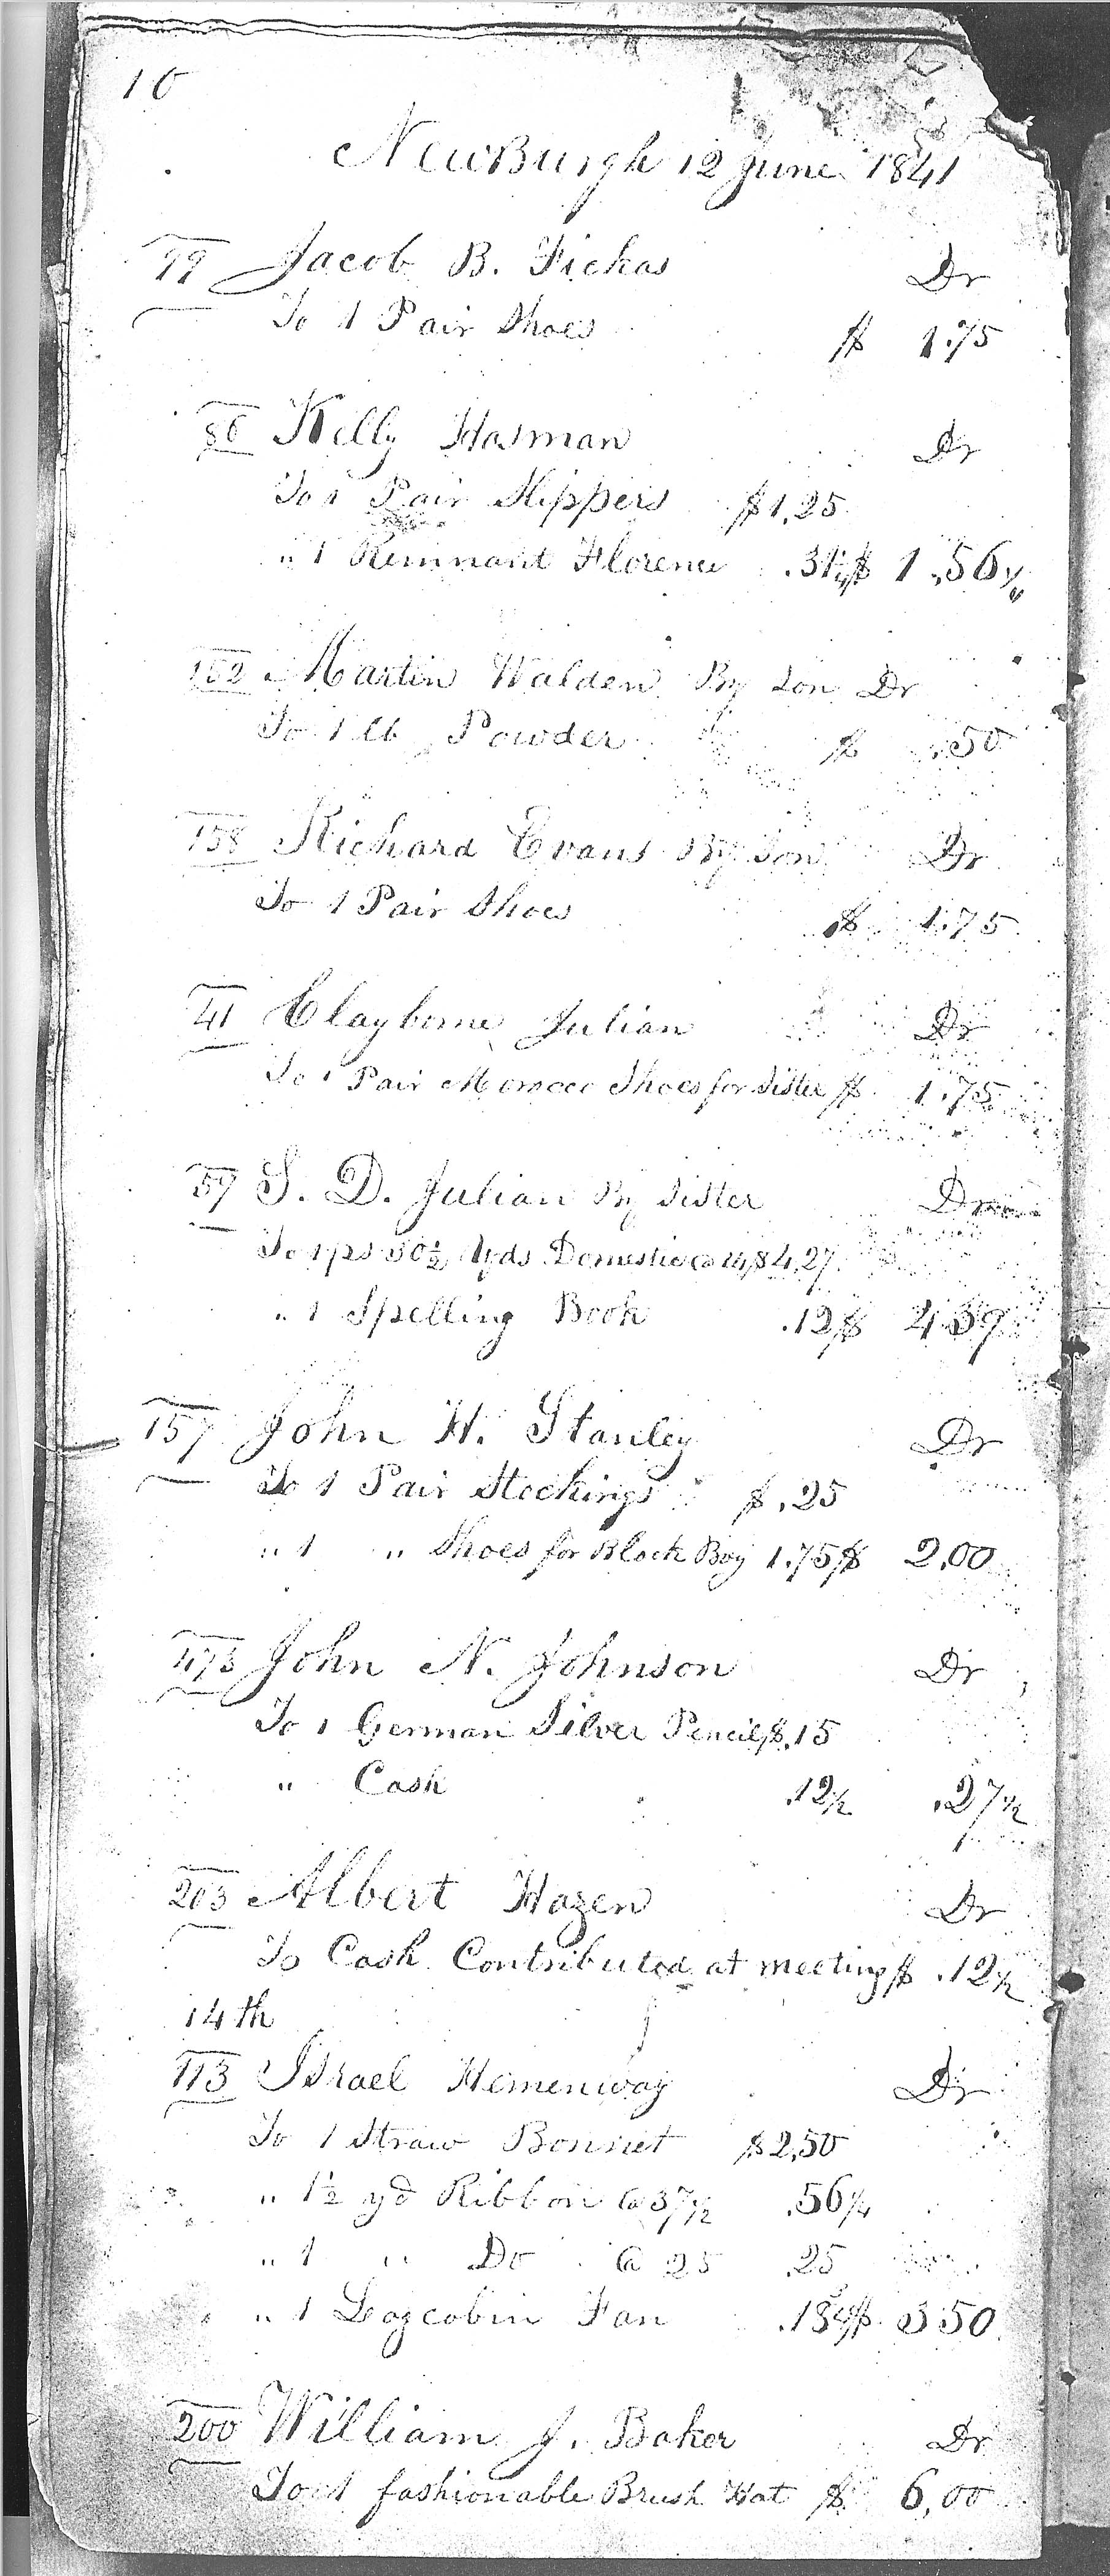 10
NewBurgh 12 June 1841
99 Jacob B. Fickas Dr
To 1 Pair Shoes $ 1.75
86 Kelly Hasman Dr
To 1 Pair Slippers $1.25
" 1 Remnant Florence .31¼ $ 1.56¼
152 Martin Walden By Son Dr
To 1 lb Powder $ .50
158 Richard Evans By Son Dr
To 1 Pair Shoes $ 1.75
41 Clayborne Julian Dr
To 1 Pair Morocco Shoes for Sister $ 1.75
59 S. D. Julian By Sister Dr
To 1 ps 30½ yds Domestic @ 14 $4,27
" 1 Spelling Book .12 $ 4 39
157 John H. Stanley Dr
To 1 Pair Stockings $ .25
" 1 " Shoes for Black Boy 1.75 $ 2,00
473 John N. Johnson Dr
To 1 German Silver Pencil $.15
" Cash .12½ .27½
203 Albert Hazen Dr
To Cash Contributed at meeting $ .12½
14th
113 Israel Hemenway Dr
To 1 Straw Bonnet $2,50
" 1½ yd Ribbon @ 37½ .56¼
" 1 " Do @ 25 .25
" 1 Fan .18¾ $ 3 50
200 William J. Baker Dr
To 1 fashionable Brush Hat $ 6,00